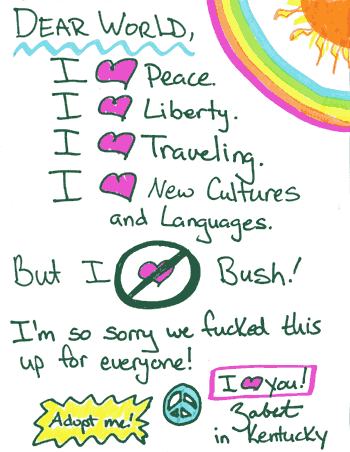 DEAR WORLD,
I ♥ Peace.
I ♥ Liberty.
I ♥ Traveling.
I ♥ New Cultures
and Languages.
But I ♥ Bush!
I'm so sorry we fucked this
up for everyone!
I ♥ you!
Adopt me!
zabet
in Kentucky